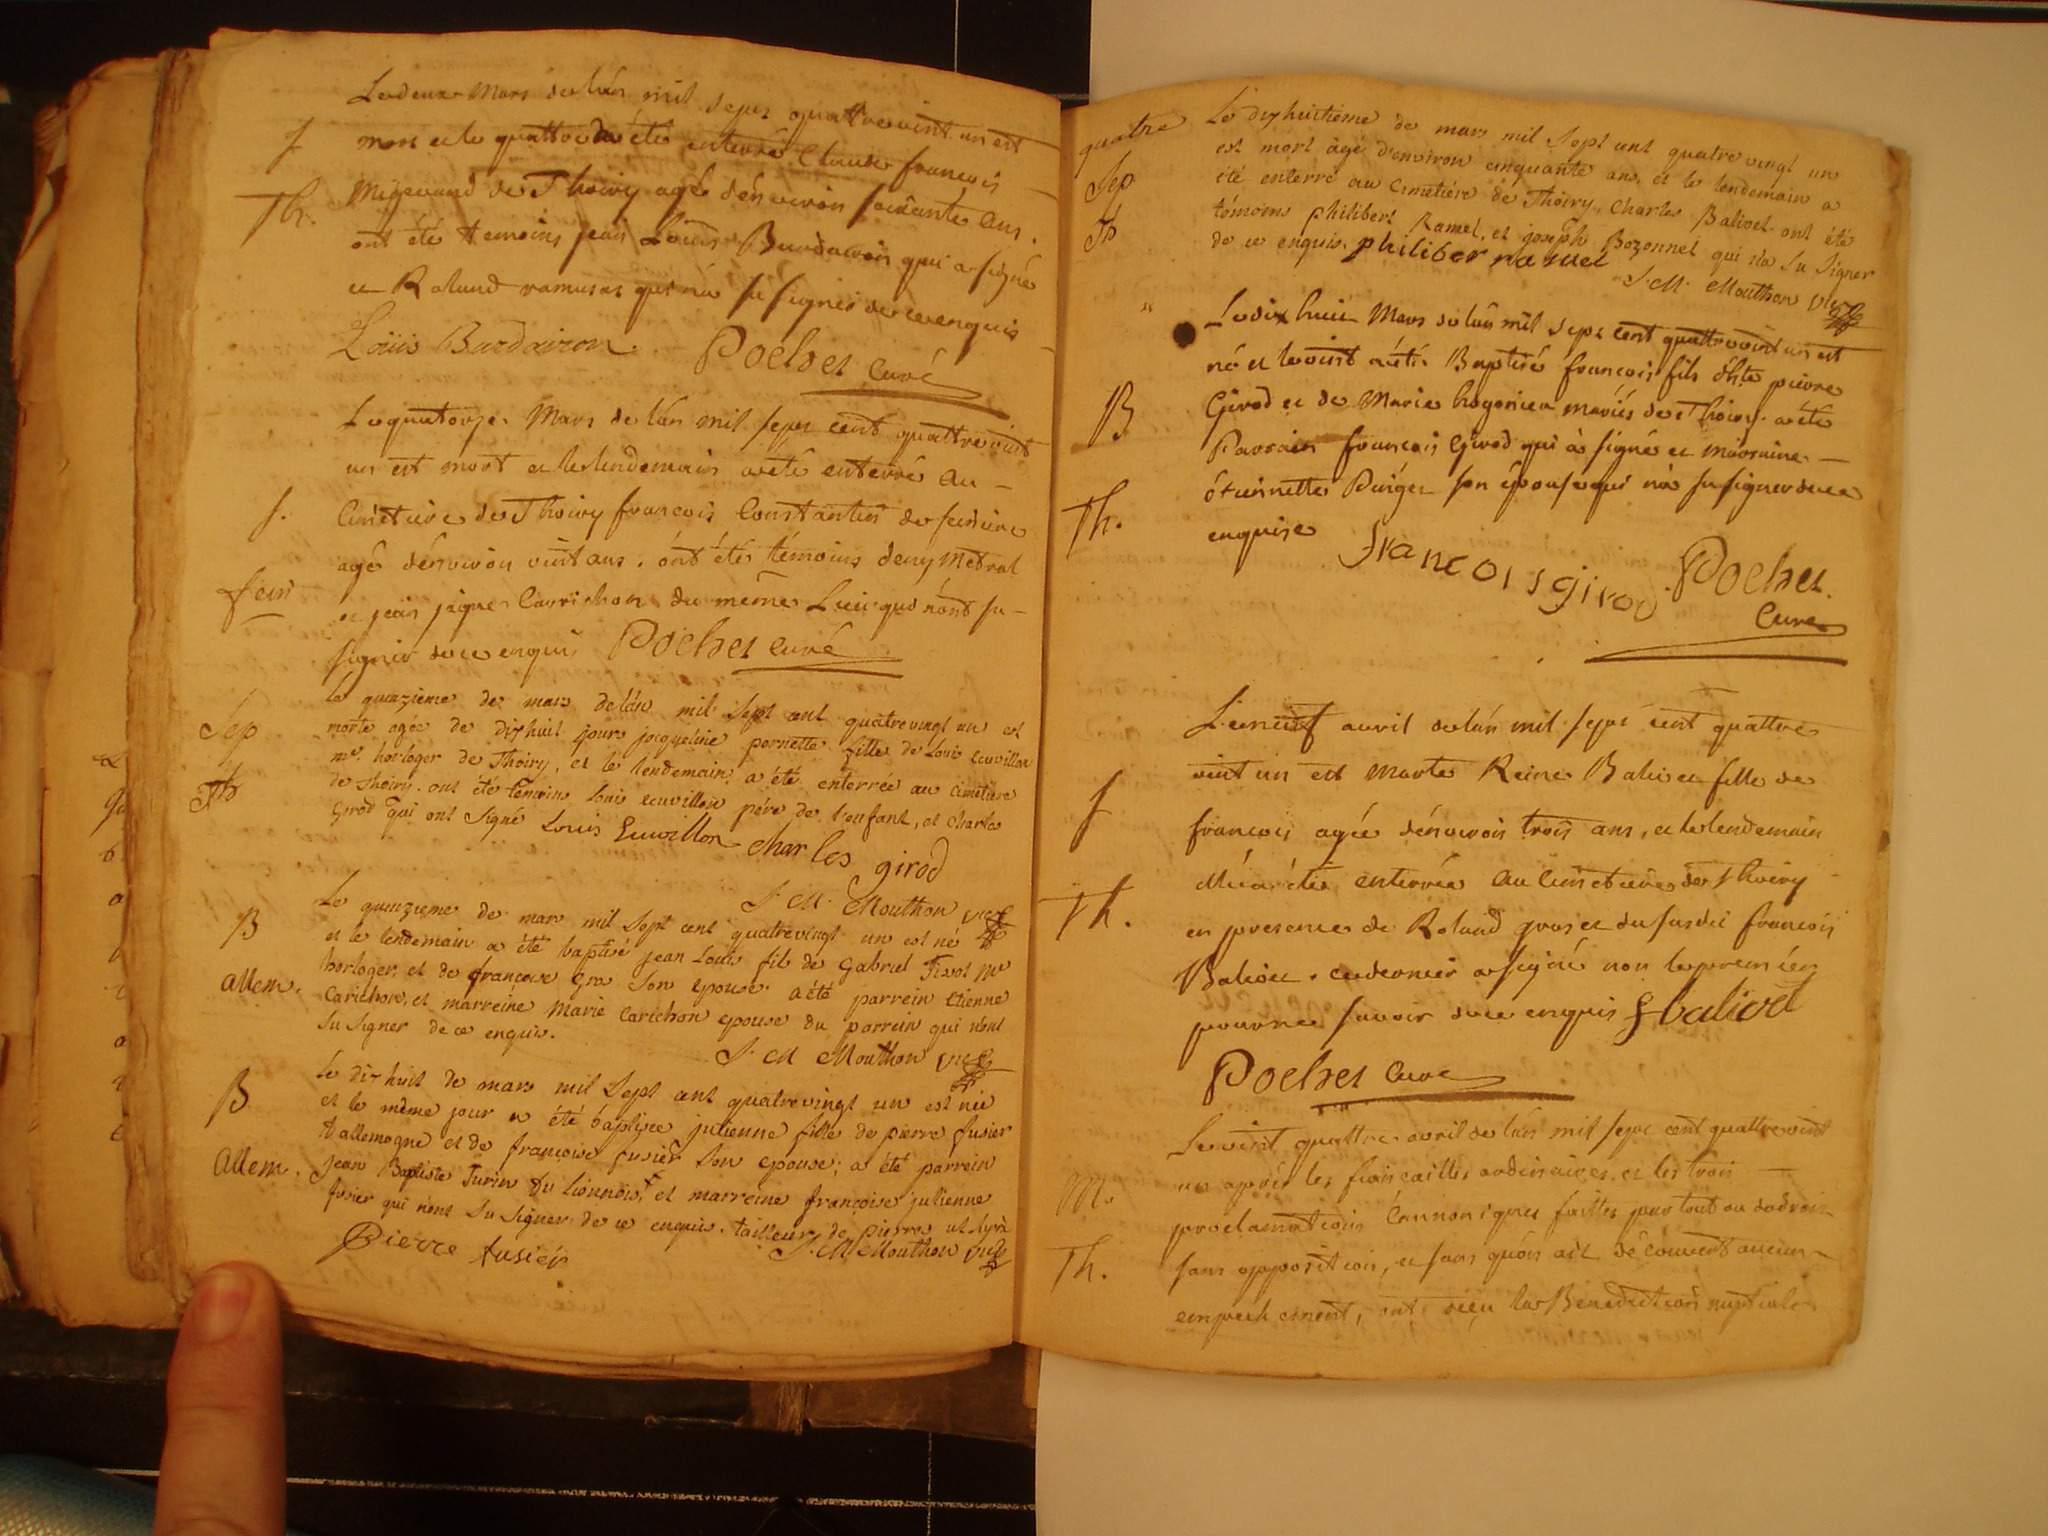 Le deux Mars de lán mil sept quattrevint un est
mort et le quattre a été enterré Claude francois
f
de Thoiry agé dénviron soixante ans.
Th.
ont été temoins jean Louis Burdairon qui a signé
et Roland ramusat qui ná su signer de ce enquis
Louis Burdairon. Pochet Curé
Le quatorze Mars de lán mil sept cent quattrevint
un est mort et le lendemain a eté enterré au
f.
Cimetiere de Thoiry francois Constantin de
agé dénviron vint ans. ónt été témoins deny Metral
et jean jaque Carrichon du même Lieu qui nónt su
signer de ce enquis Pochet Curé
Sep
le quinzieme de mars delán mil Sept cent quatrevingt un est
morte agée de dixhuit jours jacqueline pernette fille de Louis Euvillon
Me. horloger de Thoiry, et le lendemain a été enterrée au cimetiere
Th
de Thoiry. ont été témoins Louis euvillon père de l'enfant, et charle
Girod qui ont Signé Louis Euvillon charles girod
J. M. Mouthon vic
B
Le quinzieme de mars mil Sept cent quatrevingt un est né
et le lendemain a été baptisé jean Louis fils de Gabriel Tissot Me
allem.
horloger, et de francoise Gra Son epouse. a été parrein Etienne
Carichon, et marreine Marie Carichon epouse du parrein qui n'ont
Su Signer de ce enquis.
J. M Mouthon vic
B
Le dixhuit de mars mil Sept cent quatrevingt un est née
et le même jour a été baptisée julienne fille de pierre fusier
d'allemogne et de françoise fusier Son epouse; a été parrein
allem.
jean Baptiste Turin du Lionnois, et marreine françoise julienne
fusier qui n'ont Su Signer de ce enquis. tailleur de pierre
Pierre fusier J. M. Mouthon vic
quatre
Le dixhuitieme de mars mil Sept cent quatre vingt un
est mort âgé d'environ cinquante ans, et le lendemain a
Sep
été enterré au Cimetiére de Thoiry, Charles Balivet. ont été
Th
témoins philibert Ramel, et joseph Bozonnet qui n'a Su Signer
de ce enquis. philiber ramel
J. M. Mouthon vic
Le dix huit Mars de lán mil sept cent quattrevint un est
né et le vint a été Baptisé françois fils
pierre
B
Girod et de Marie mariés de Thoiry. a été
Parrain francois Girod qui à signé et márraine
étiennette son épouse qui ná su signer de ce
Th.
enquise
francois girod Pochet
Curé
Le neuf avril de lán mil sept cent quattre
vint un est Morte Reine Balivet fille de
f
francois agée dénviron trois ans, et le lendemain
elle a été enterrée au Cimetiere de Thoiry
Th.
en presence de Roland gros et du susdit francois
Balivet. ce dernier a signé non le premier
pour ne savoir de ce enquis f balivet
Pochet Curé
Le vint quattre avril de lán mil sept cent quattrevint
un aprés les fiançailles ordinaires, et les trois
M.
proclamations Cannoniques faittes par tout ou de droit
Th.
sans opposition, et sans quón ait découvert aucun
empechement, ont reçu la Bénédiction nuptiale